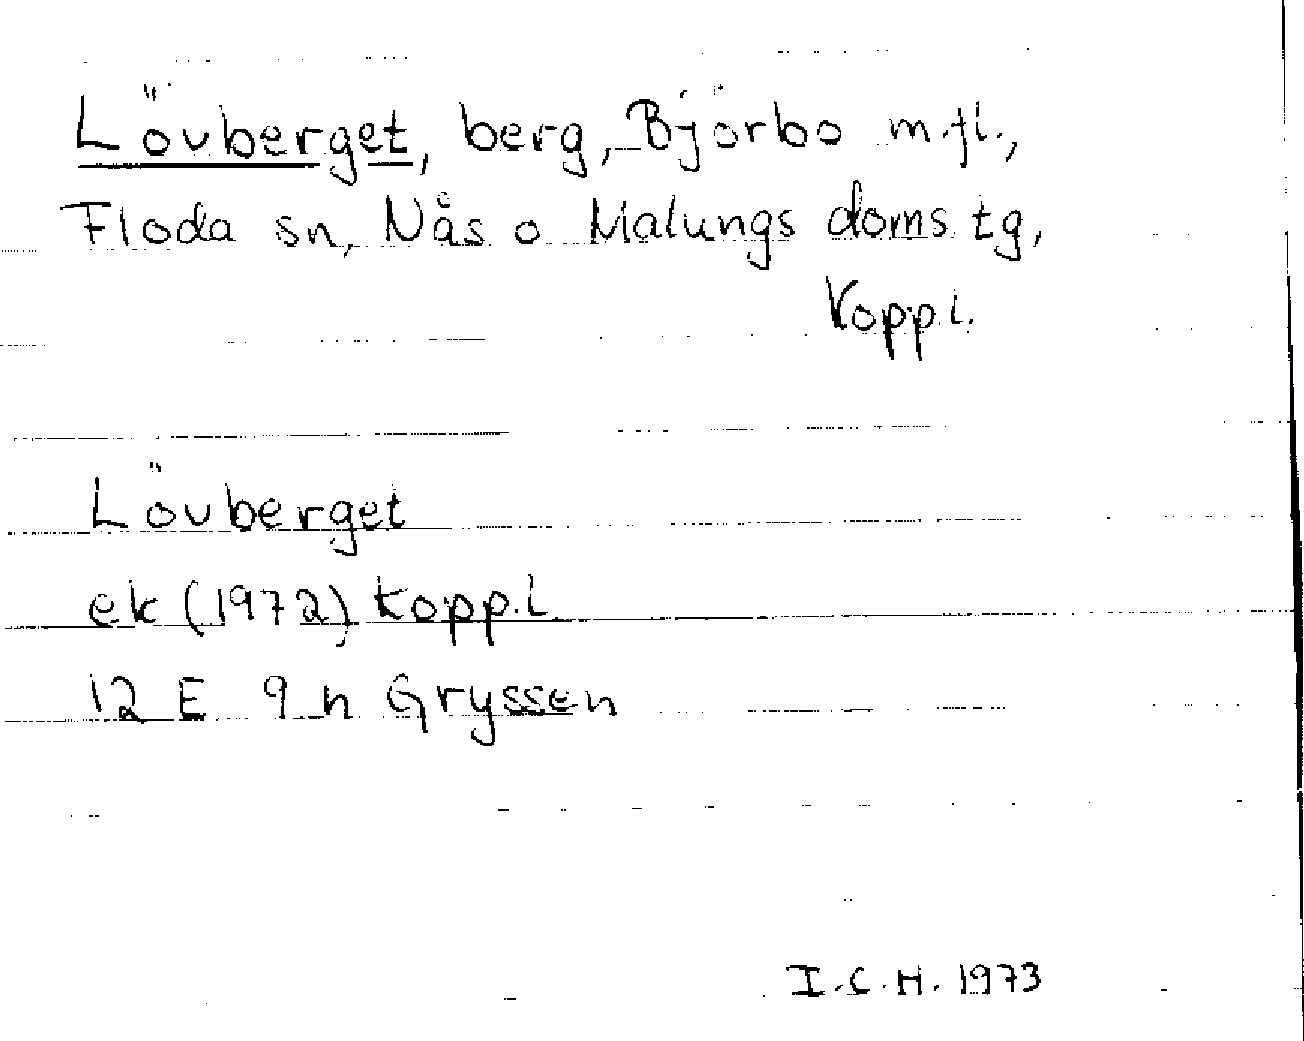 Lövberget, berg, Björbo m.fl.,
Floda sn, Nås o Malungs doms tg,
Kopp.l.
Lövberget
ek (1972) Kopp.l
12 E 9 h Gryssen
I.C.H. 1973